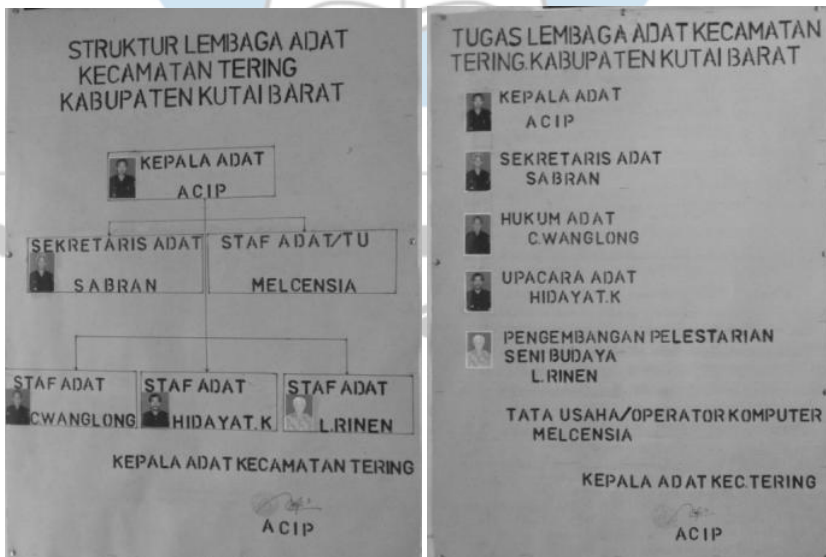 STRUKTUR LEMBAGA ADAT
KECAMATAN TERING
KABUPATEN KUTAI BARAT
KEPALA ADAT
ACIP
SEKRETARIS ADAT
SABRAN
STAF ADAT/TU
MELCENSIA
STAF ADAT
C.WANGLONG
STAF ADAT
HIDAYAT.K
STAF ADAT
L.RINEN
KEPALA ADAT KECAMATAN TERING
ACIP
TUGAS LEMBAGA ADAT KECAMATAN
TERING.KABUPATEN KUTAI BARAT
KEPALA ADAT
ACIP
SEKRETARIS ADAT
SABRAN
HUKUM ADAT
C.WANGLONG
UPACARA ADAT
HIDAYAT.K
PENGEMBANGAN PELESTARIAN
SENI BUDAYA
L.RINEN
TATA USAHA/OPERATOR KOMPUTER
MELCENSIA
KEPALA ADAT KEC.TERING
ACIP